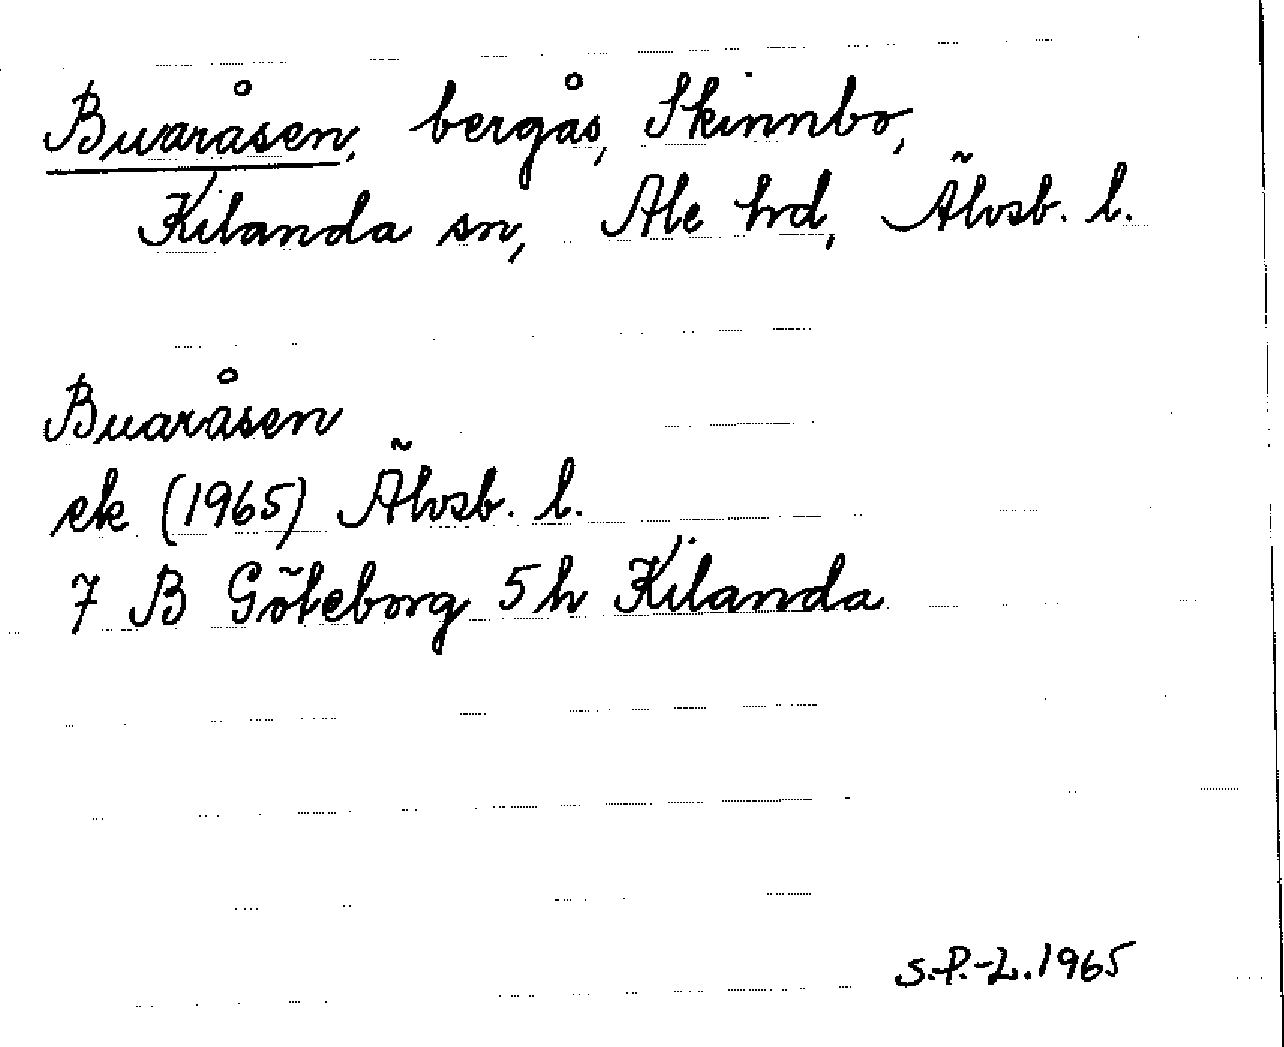 Buaråsen, bergås, Skinnbo,
Kilanda sn, Ale hrd, Älvsb. l.
Buaråsen
ek (1965) Älvsb. l.
7 B Göteborg 5 h Kilanda
S.-P.-L. 1965